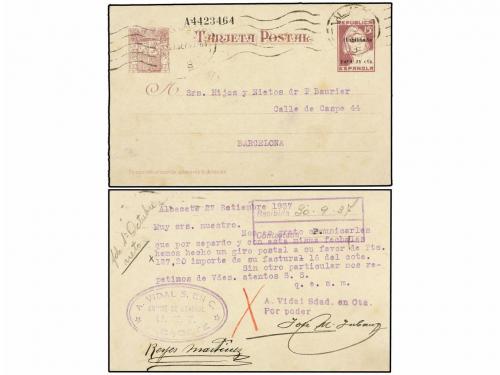 A4423464
TARJETA POSTAL
REPUBLICA
15
ESPAÑOLA
Srs. Hijos y Nietos dr P Baurier
Calle de Caspe 44
BARCELONA
Albacete 27 Setiembre 1937
Recibida 30-9-37
Muy srs. nuestro.
Nos es grato comunicarles
que por separdo y con esta misma fecha les
hemos hecho un giro postal a su favor de Pts.
137,20 importe de su factural 16 del cote.
Sin otro particular nos re-
petimos de Vdes. atentos S. S.
q. e. s. m.
A. VIDAL S. EN C.
A. Vidal Sdad. en Cta.
Por poder
Reyes Martinez